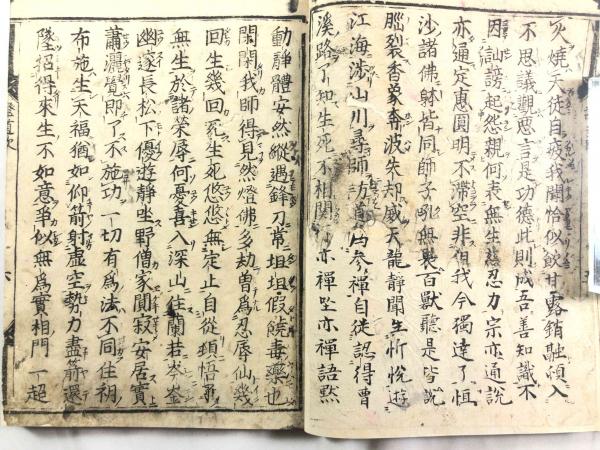 火燒天徒自疲我聞恰似飲甘露銷融頓入
不思議觀惡言是功德此則成吾善知識不
因訕謗起怨親何表無生慈忍力宗亦通說
亦通定惠圓明不滯空非但我今獨達了恒
沙諸佛躰皆同師子吼無畏說百獸聽是皆
腦裂香象奔波失却威天龍靜聞生忻悅遊
江海涉山川尋師訪道為參禪自從認得曹
溪路了知生死不相關行亦禪坐亦禪語默
動靜體安然縱遇鋒刀常坦坦假饒毒藥也
閑閑我師得見然燈佛多劫曾爲忍辱仙幾
回生幾回死生死悠悠無定止自從頓悟了
無生於諸榮辱何憂喜入深山住蘭若岑崟
幽邃長松下優遊靜坐野僧家闃寂安居實
蕭灑覺即了不施功一切有爲法不同住相
布施生天福猶如仰箭射虛空勢力盡箭還
墜招得來生不如意爭似無爲實相門一超